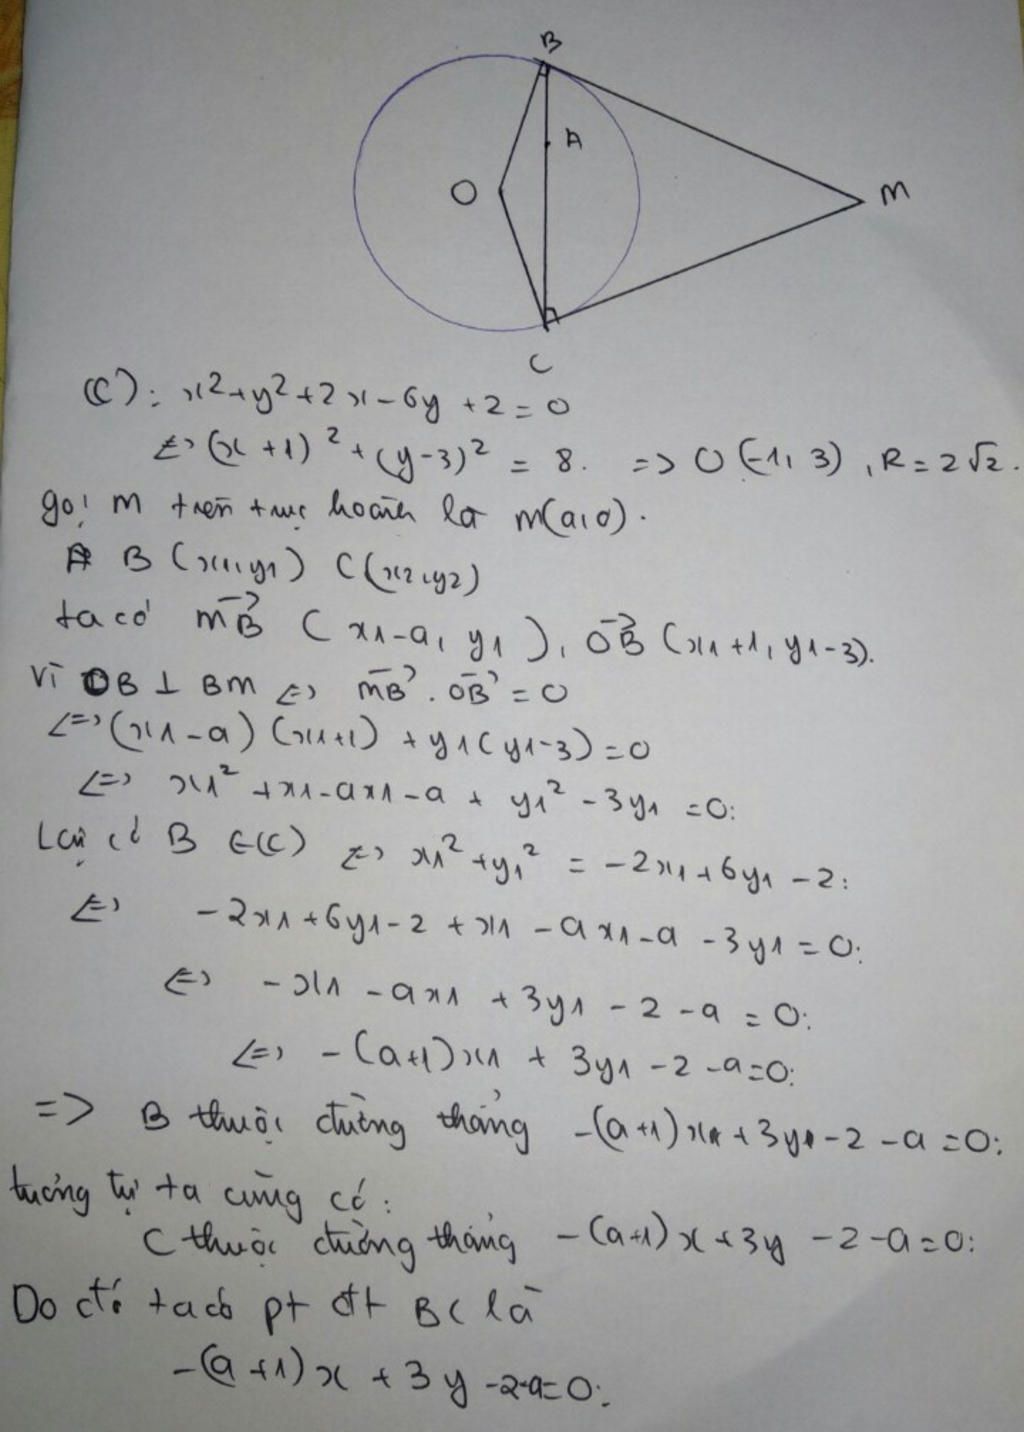 B
A
O
M
C
(C): x² + y² + 2x - 6y + 2 = 0
<=> (x + 1)² + (y - 3)² = 8. => O(-1, 3), R = 2√2.
gọi M trên trục hoành là M(a, 0).
B (x1, y1) C(x2, y2)
ta có MB→ (x1 - a, y1), OB→ (x1 + 1, y1 - 3).
Vì OB ⊥ BM <=> MB→ . OB→ = 0
<=> (x1 - a) (x1 + 1) + y1(y1 - 3) = 0
<=> x1² + x1 - ax1 - a + y1² - 3y1 = 0:
Lại có B ∈ (C) <=> x1² + y1² = -2x1 + 6y1 - 2:
<=> -2x1 + 6y1 - 2 + x1 - ax1 - a - 3y1 = 0:
<=> -x1 - ax1 + 3y1 - 2 - a = 0:
<=> -(a+1)x1 + 3y1 - 2 - a = 0:
=> B thuộc đường thẳng -(a+1)x + 3y - 2 - a = 0:
tương tự ta cũng có:
C thuộc đường thẳng -(a+1)x + 3y - 2 - a = 0:
Do đó ta có pt đt BC là
-(a+1)x + 3y - 2 - a = 0: